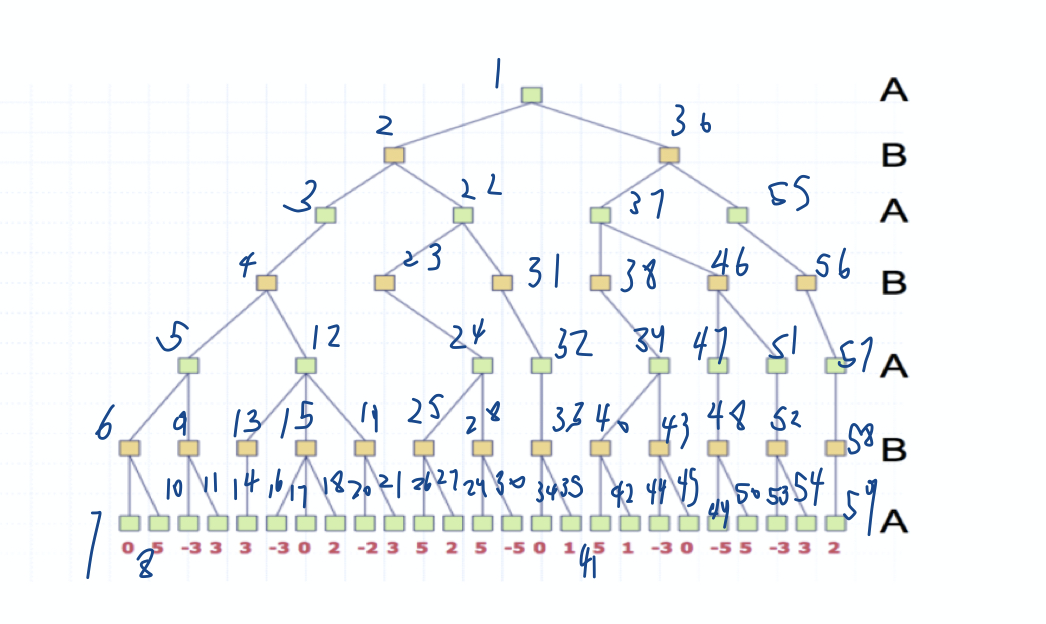 1 A
2 36 B
3 22 37 55 A
4 23 31 38 46 56 B
5 12 24 32 39 47 51 57 A
6 9 13 15 19 25 28 33 40 43 48 52 58 B
7 10 11 14 16 17 18 20 21 26 27 29 30 34 35 42 44 45 49 50 53 54 59 A
0 5 -3 3 3 -3 0 2 -2 3 5 2 5 -5 0 1 5 1 -3 0 -5 5 -3 3 2
8 41